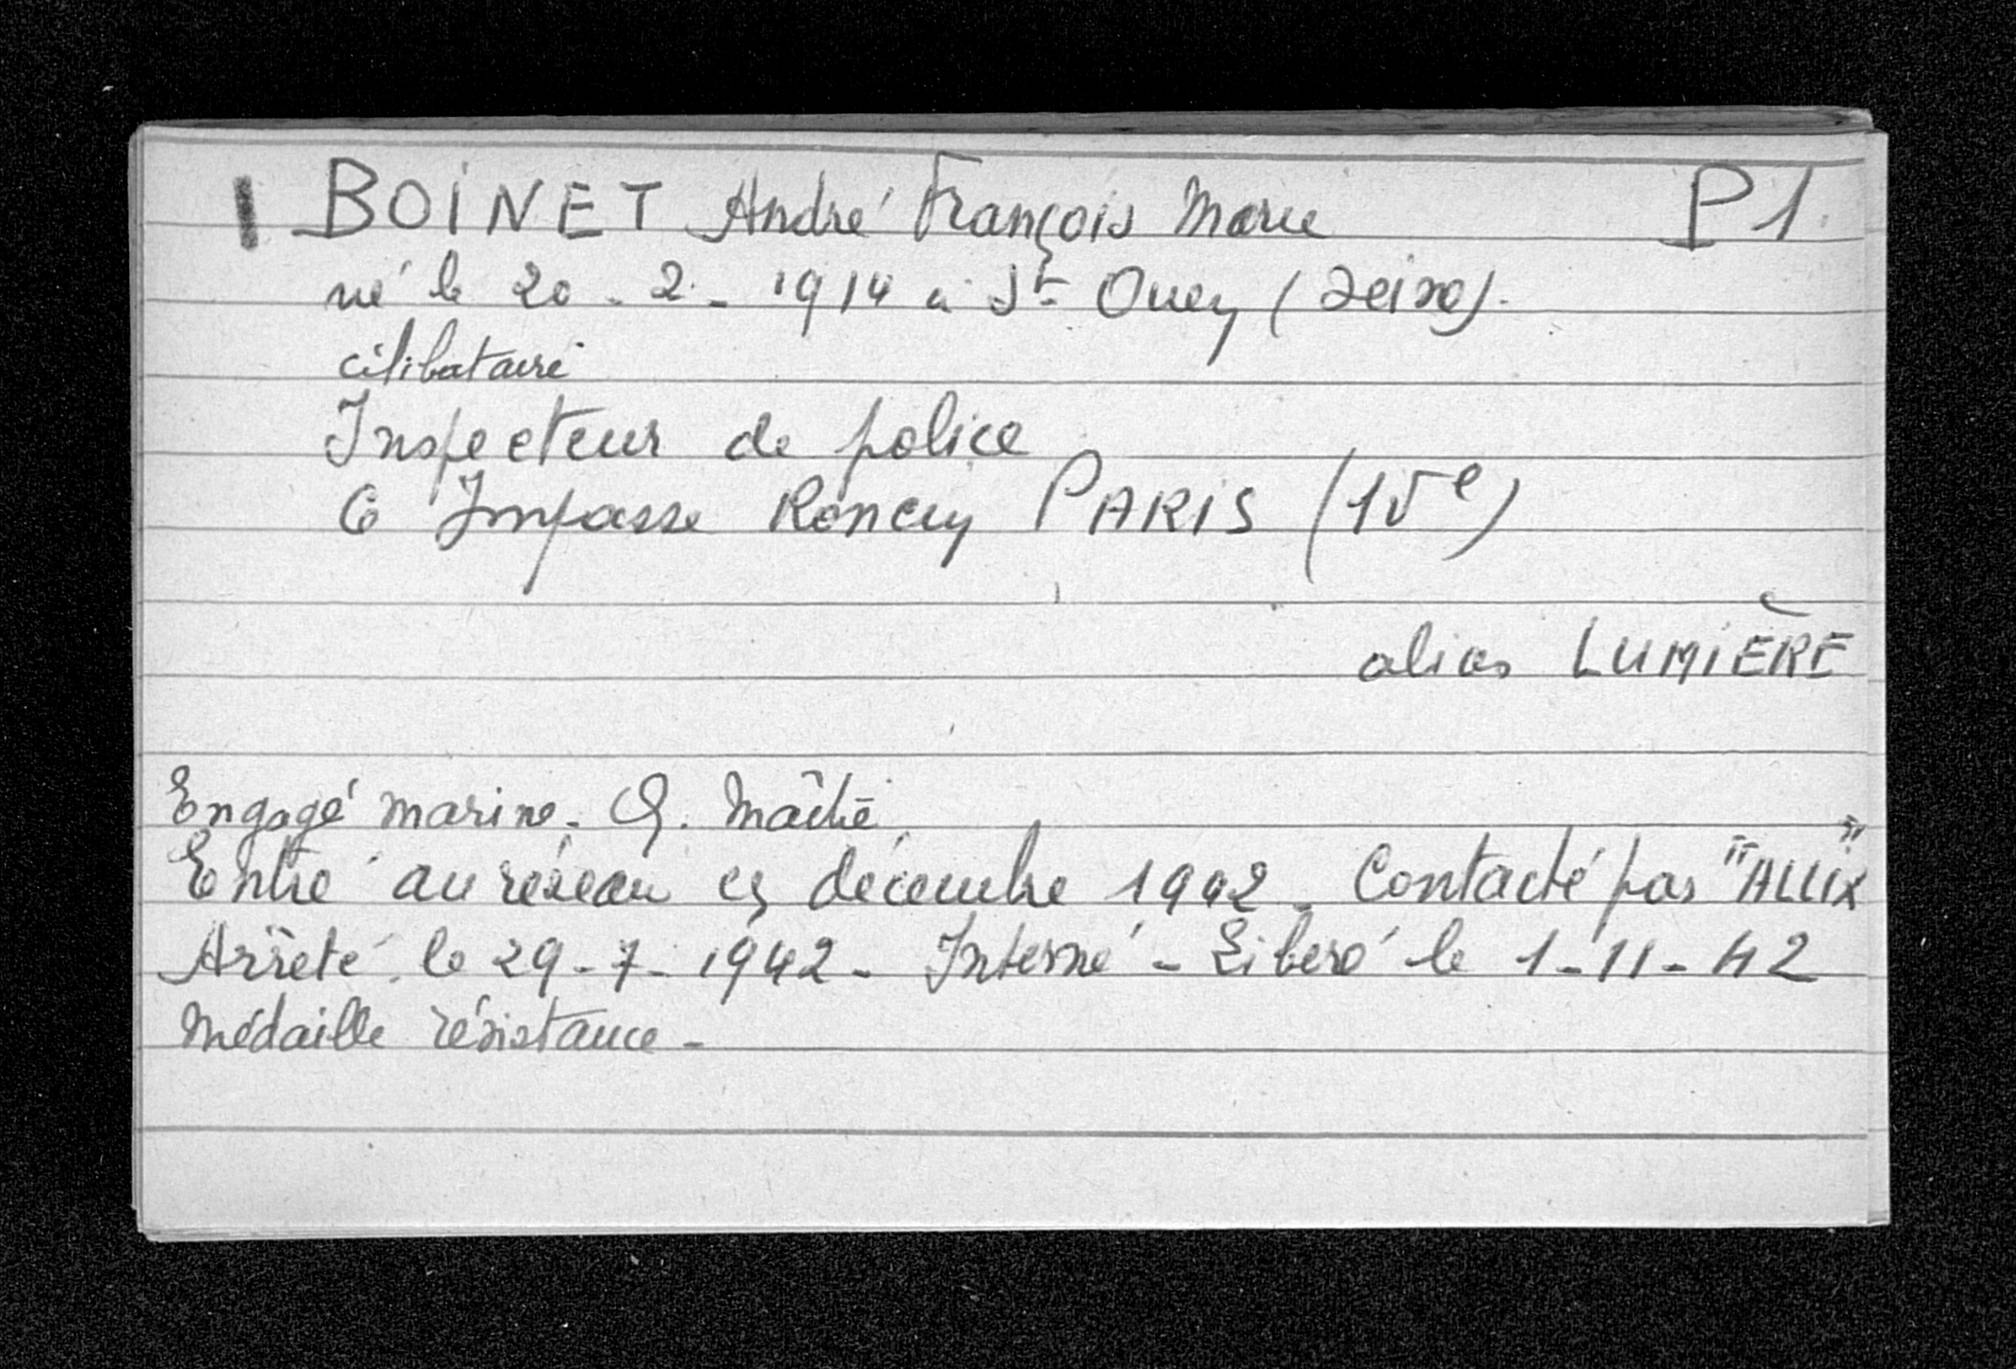 BOINET André François Marie P1
né le 20-2-1914 à St Ouen (Seine).
célibataire
Inspecteur de police
6 Impasse Roncey PARIS (15e)
alias LUMIÈRE
Engagé marine. Q. Maître
Entré au réseau en décembre 1942. Contacté par "ALLIX"
Arrêté le 29-7-1942 - Interné - Libéré le 1-11-42
Médaille résistance -